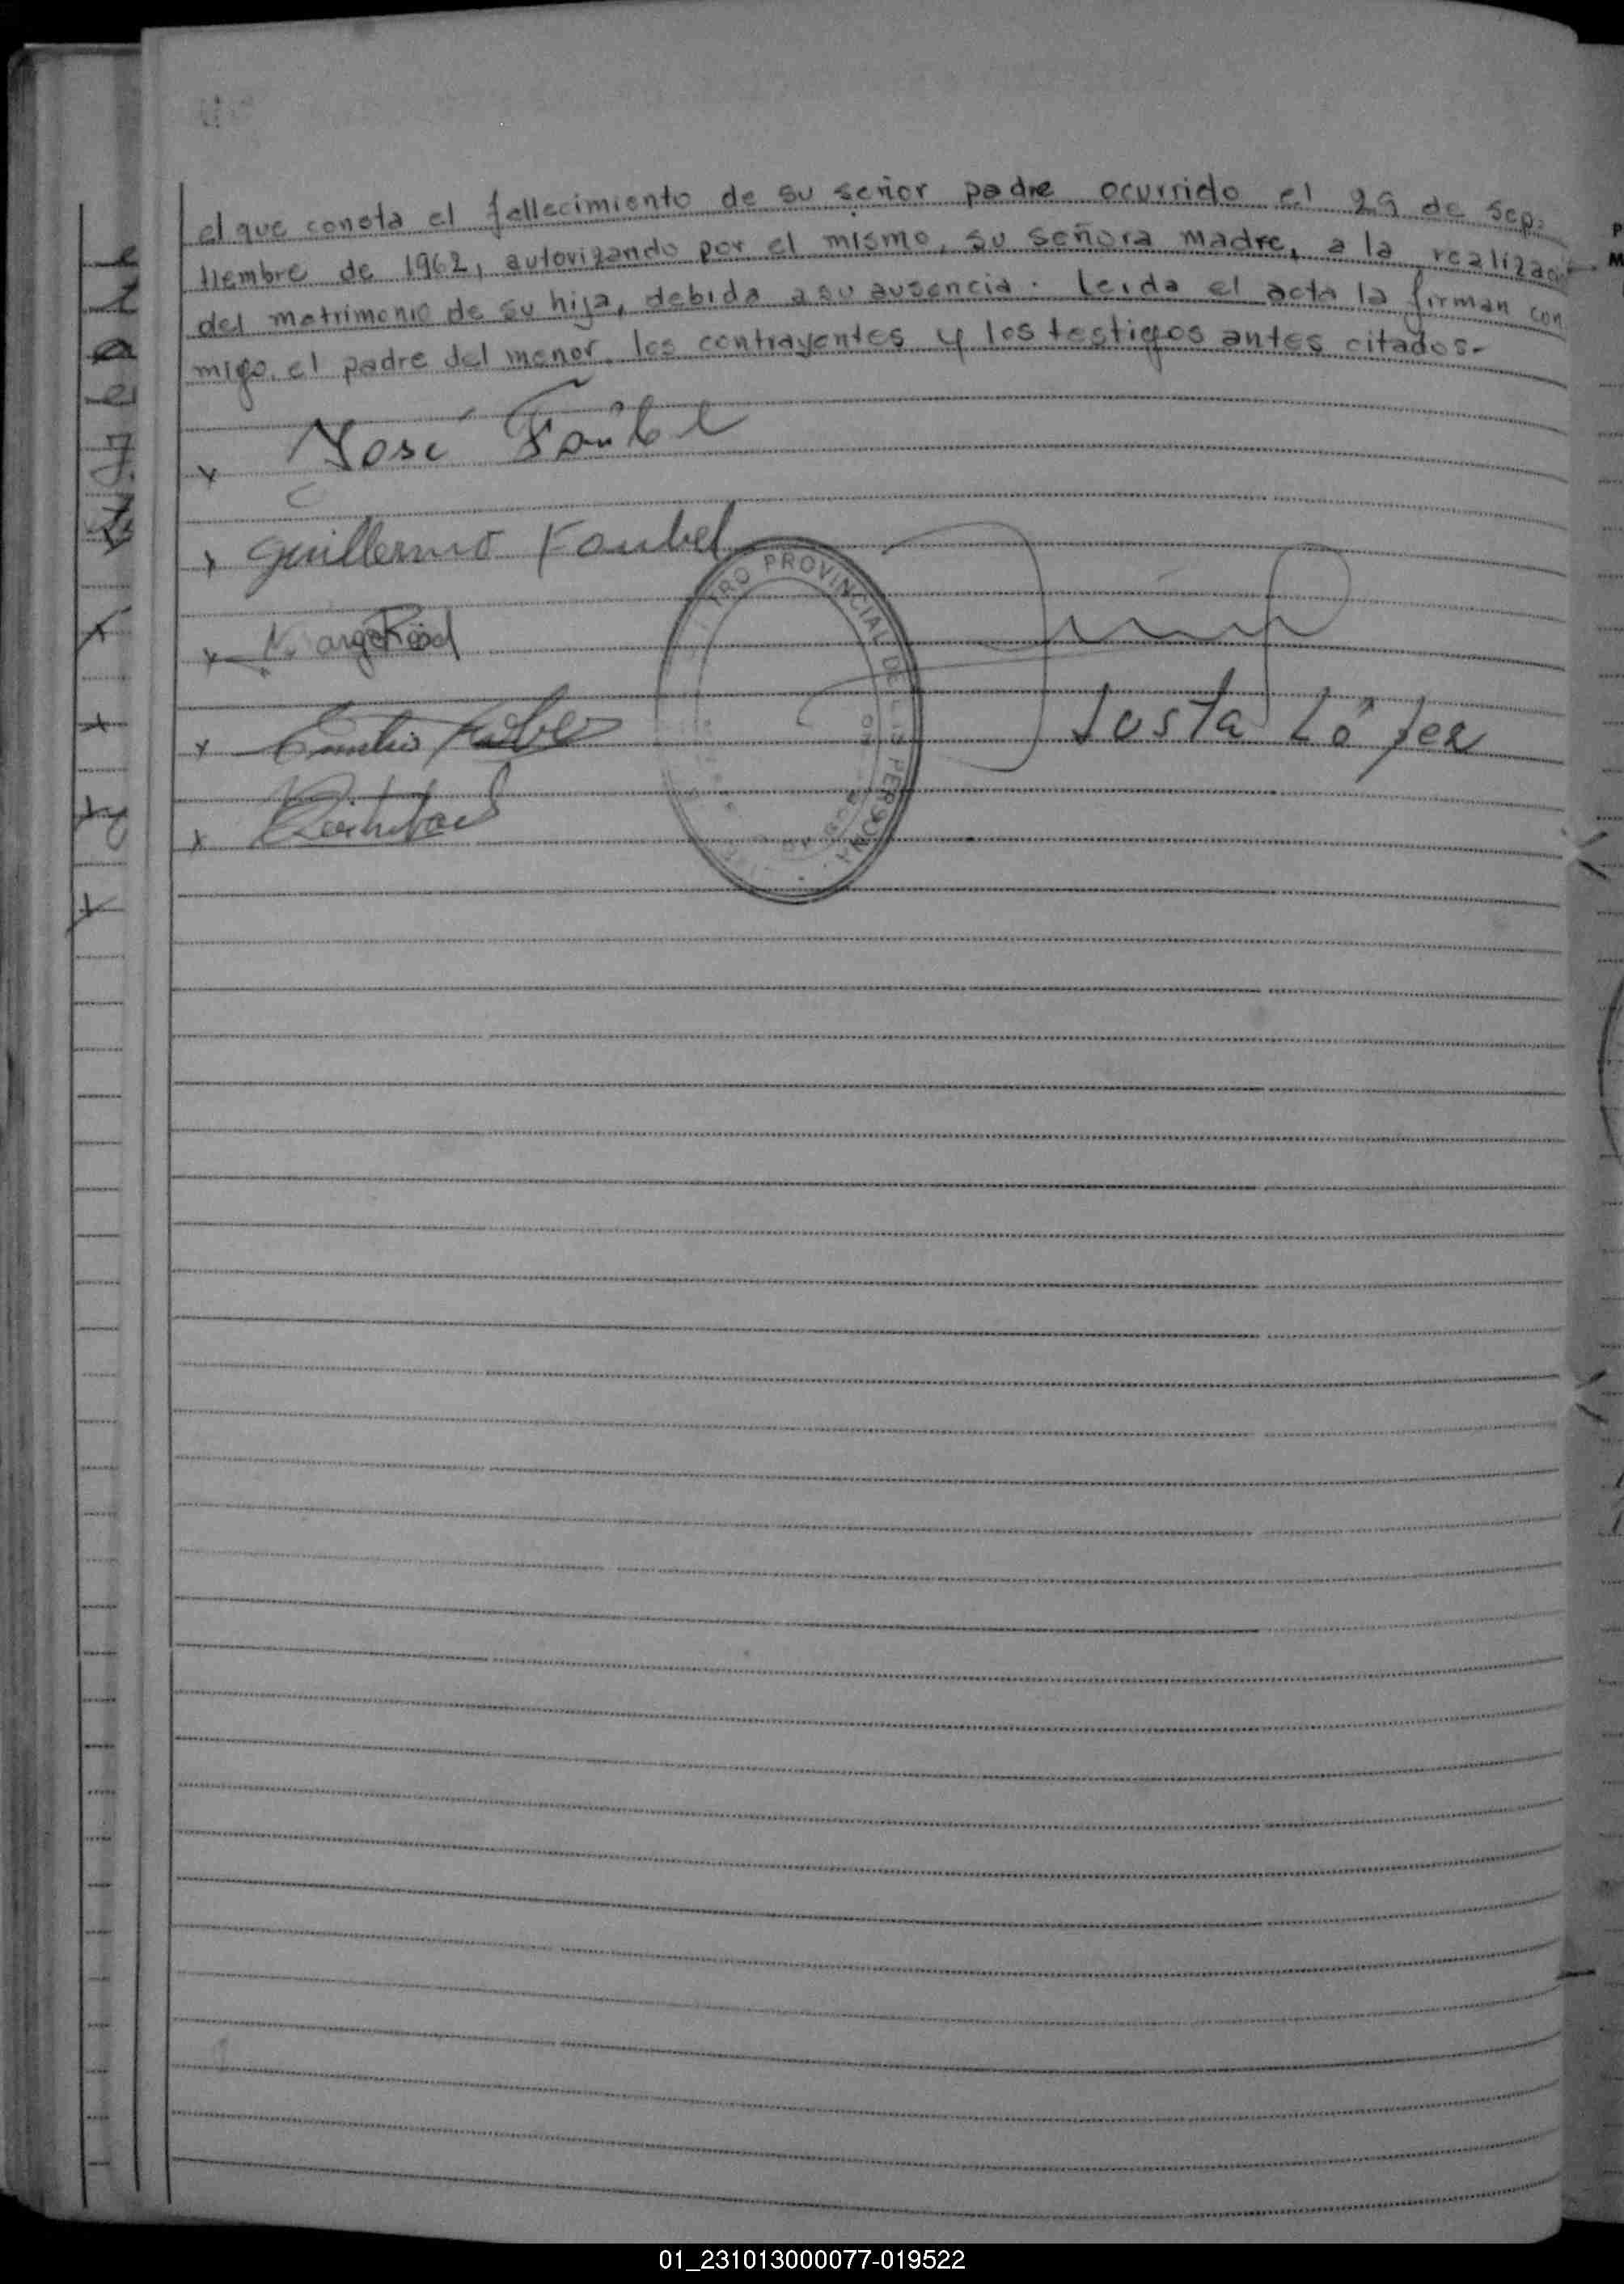 el que consta el fallecimiento de su señor padre ocurrido el 29 de sep-
tiembre de 1962, autorizando por el mismo, su señora madre, a la realizació
del matrimonio de su hija, debida a su ausencia. Leida el acta la firman con
migo, el padre del menor, los contrayentes y los testigos antes citados.-
x José Faubel
x Guillermo Faubel
x
x Emilio Faubel
Justa López
x
TRO PROVINCIAL DE LAS PERSONAS
01_231013000077-019522